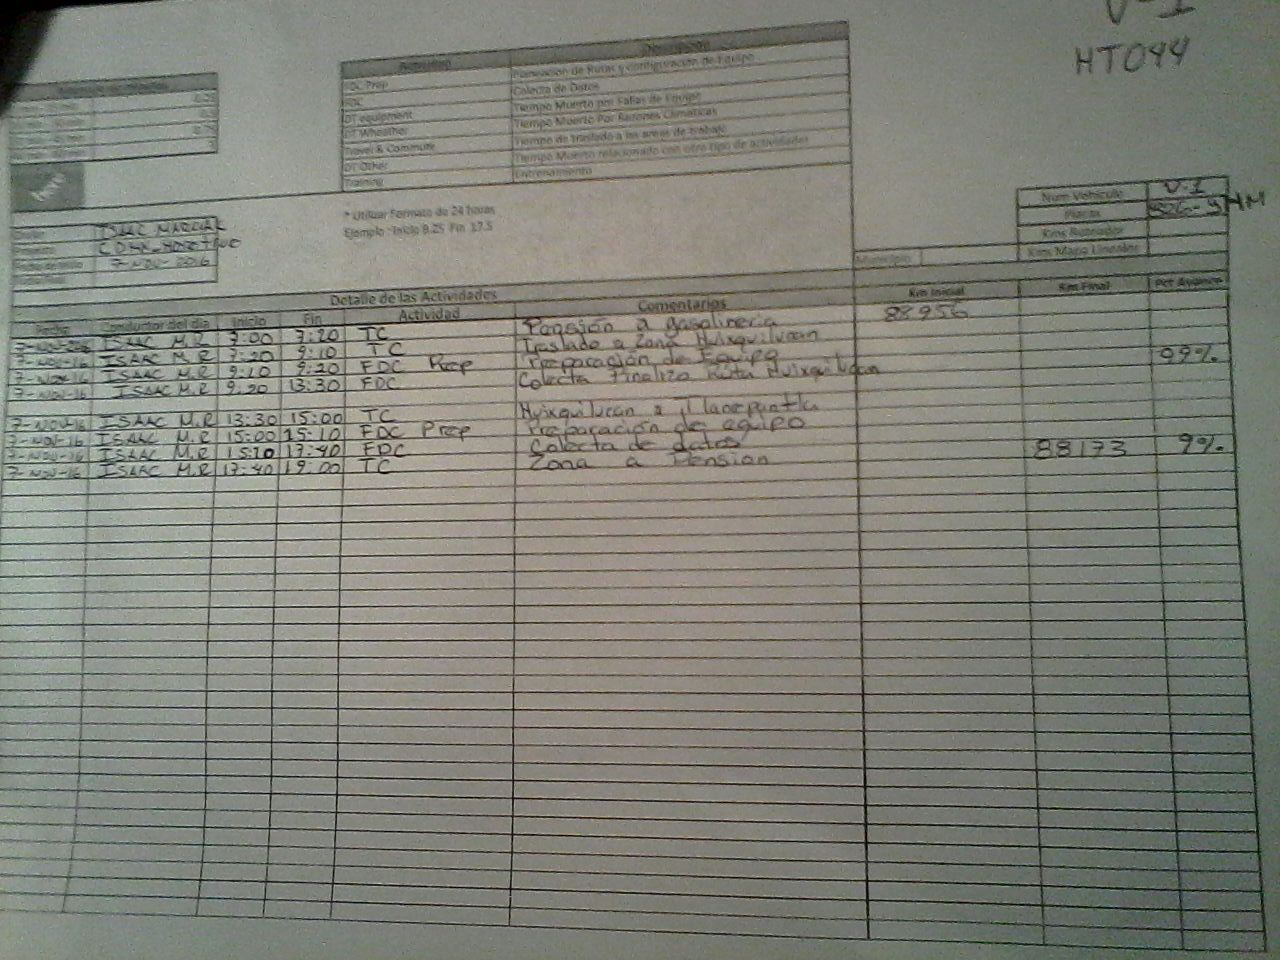 V-1
HT044
Actividad Descripción
FDC Prep Planeación de Rutas y configuración de Equipo
FDC Colecta de Datos
DT equipment Tiempo Muerto por Fallas de Equipo
DT Wheather Tiempo Muerto Por Razones Climaticas
Travel & Commute Tiempo de traslado a las areas de trabajo
DT Other Tiempo Muerto relacionado con otro tipo de actividades
Training Entrenamiento
* Utilizar Formato de 24 horas
Ejemplo : Inicio 8.25 Fin 17.5
Num Vehiculo V-1
Placas
Kms Ruteador
Kms Maria Lineales
ISAAC MARCIAL
7-NOV-2016
Municipio
Detalle de las Actividades
Fecha Conductor del dia Inicio Fin Actividad Comentarios Km Inicial Km Final Pct Avance
7-NOV-2016 ISAAC M.R 7:00 7:20 TC Pensión a gasolineria 88956
7-NOV-16 ISAAC M.R 7:20 9:10 TC Traslado a Zona Huixquilucan
7-NOV-16 ISAAC M.R 9:10 9:20 FDC Prep Preparación de Equipo 99%
7-NOV-16 ISAAC M.R 9:20 13:30 FDC Colecta Finaliza Ruta Huixquilucan
7-NOV-16 ISAAC M.R 13:30 15:00 TC Huixquilucan a Tlanepantla
7-NOV-16 ISAAC M.R 15:00 15:10 FDC Prep Preparación de equipo
7-NOV-16 ISAAC M.R 15:10 17:40 FDC Colecta de datos 88173 9%
7-NOV-16 ISAAC M.R 17:40 19:00 TC Zona a Pension